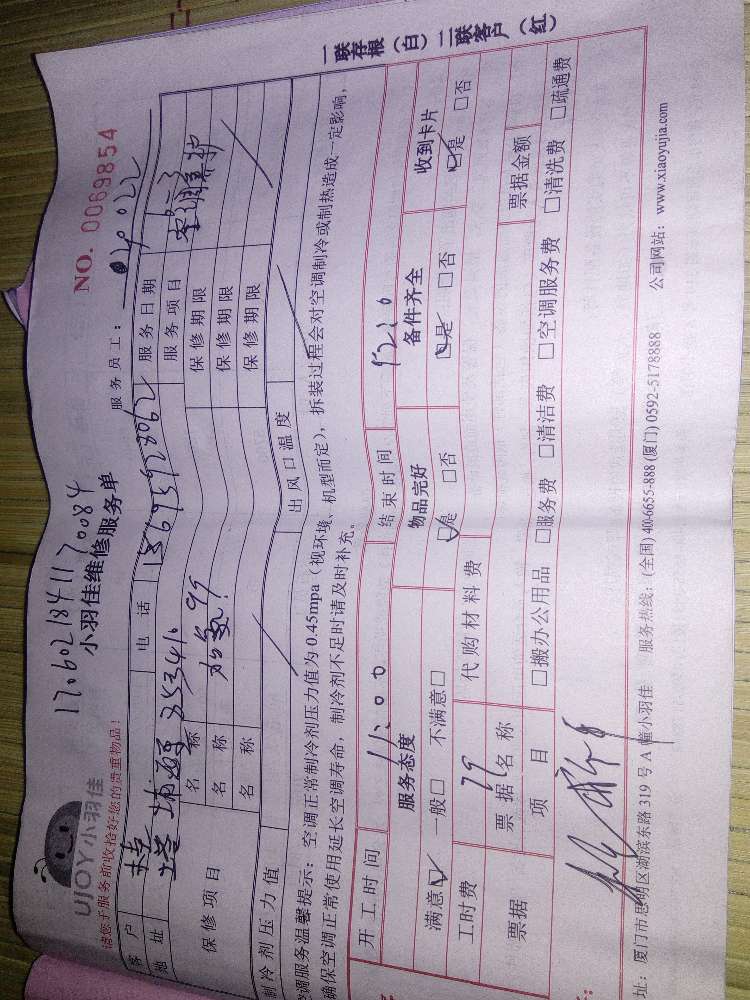 一联存根（白）二联客户（红）
NO. 0069854
17060218411 70084
UJOY小羽佳
小羽佳维修服务单
请您于服务前收拾好您的贵重物品！
服务员工：
客户
电话
服务日期
地址
服务项目 空调养护
保修项目
名称
保修期限
名称
保修期限
名称
保修期限
制冷剂压力值
出风口温度
空调服务温馨提示：空调正常制冷剂压力值为0.45mpa（视环境、机型而定），拆装过程会对空调制冷或制热造成一定影响，
确保空调正常使用延长空调寿命，制冷剂不足时请及时补充。
开工时间 11:00
结束时间
服务态度
物品完好
备件齐全
收到卡片
满意☑ 一般□ 不满意□
☑是 □否
☑是 □否
☑是 □否
工时费 79
代购材料费
票据
票据名称
票据金额
项目
□搬办公用品 □服务费 □清洁费 □空调服务费 □清洗费 □疏通费
址：厦门市思明区湖滨东路319号A幢小羽佳 服务热线：(全国) 400-6655-888 (厦门) 0592-5178888 公司网站：www.xiaoyujia.com